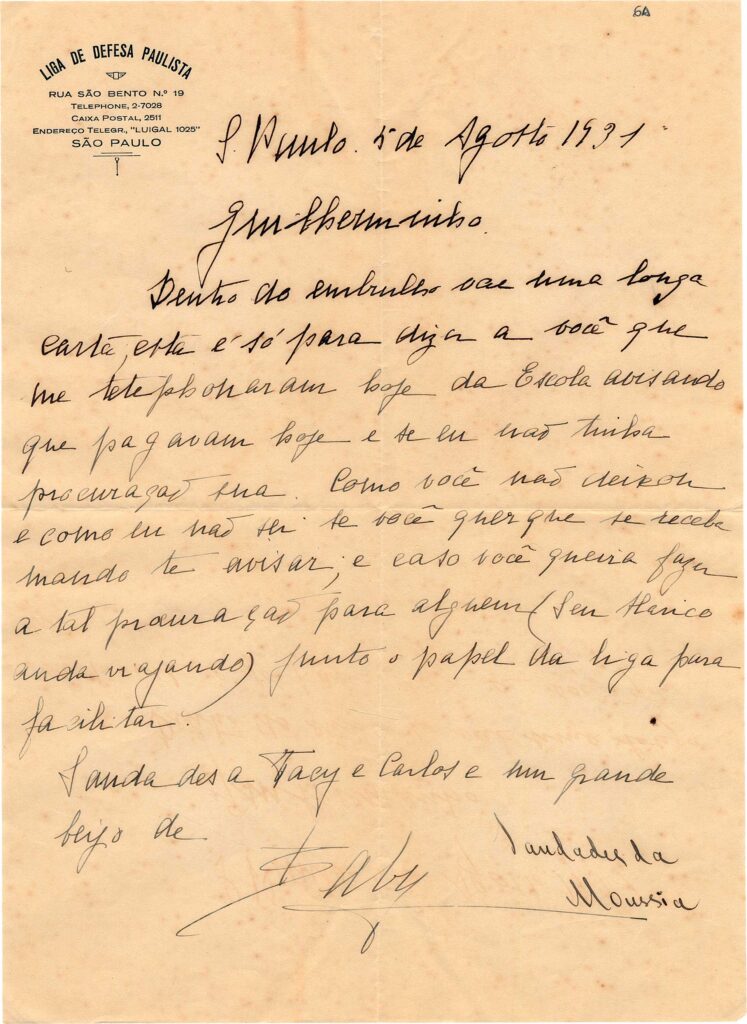 6A
LIGA DE DEFESA PAULISTA
RUA SÃO BENTO N.º 19
TELEPHONE, 2-7028
CAIXA POSTAL, 2511
ENDEREÇO TELEGR., "LUIGAL 1025"
SÃO PAULO
S. Paulo. 5 de Agosto 1931
Guilherminho.
Dentro do embrulho vae uma longa
carta, esta é só para dizer a você que
me telephonaram hoje da Escola avisando
que pagavam hoje e se eu não tinha
procuração sua. Como você não deixou
e como eu não sei se você quer que se receba
mando te avisar; e caso você queira fazer
a tal procuração para alguem (Seu
anda viajando) junto o papel da liga para
facilitar.
Saudades a Tacy e Carlos e um grande
beijo de
Gaby
Saudades da
Moussia